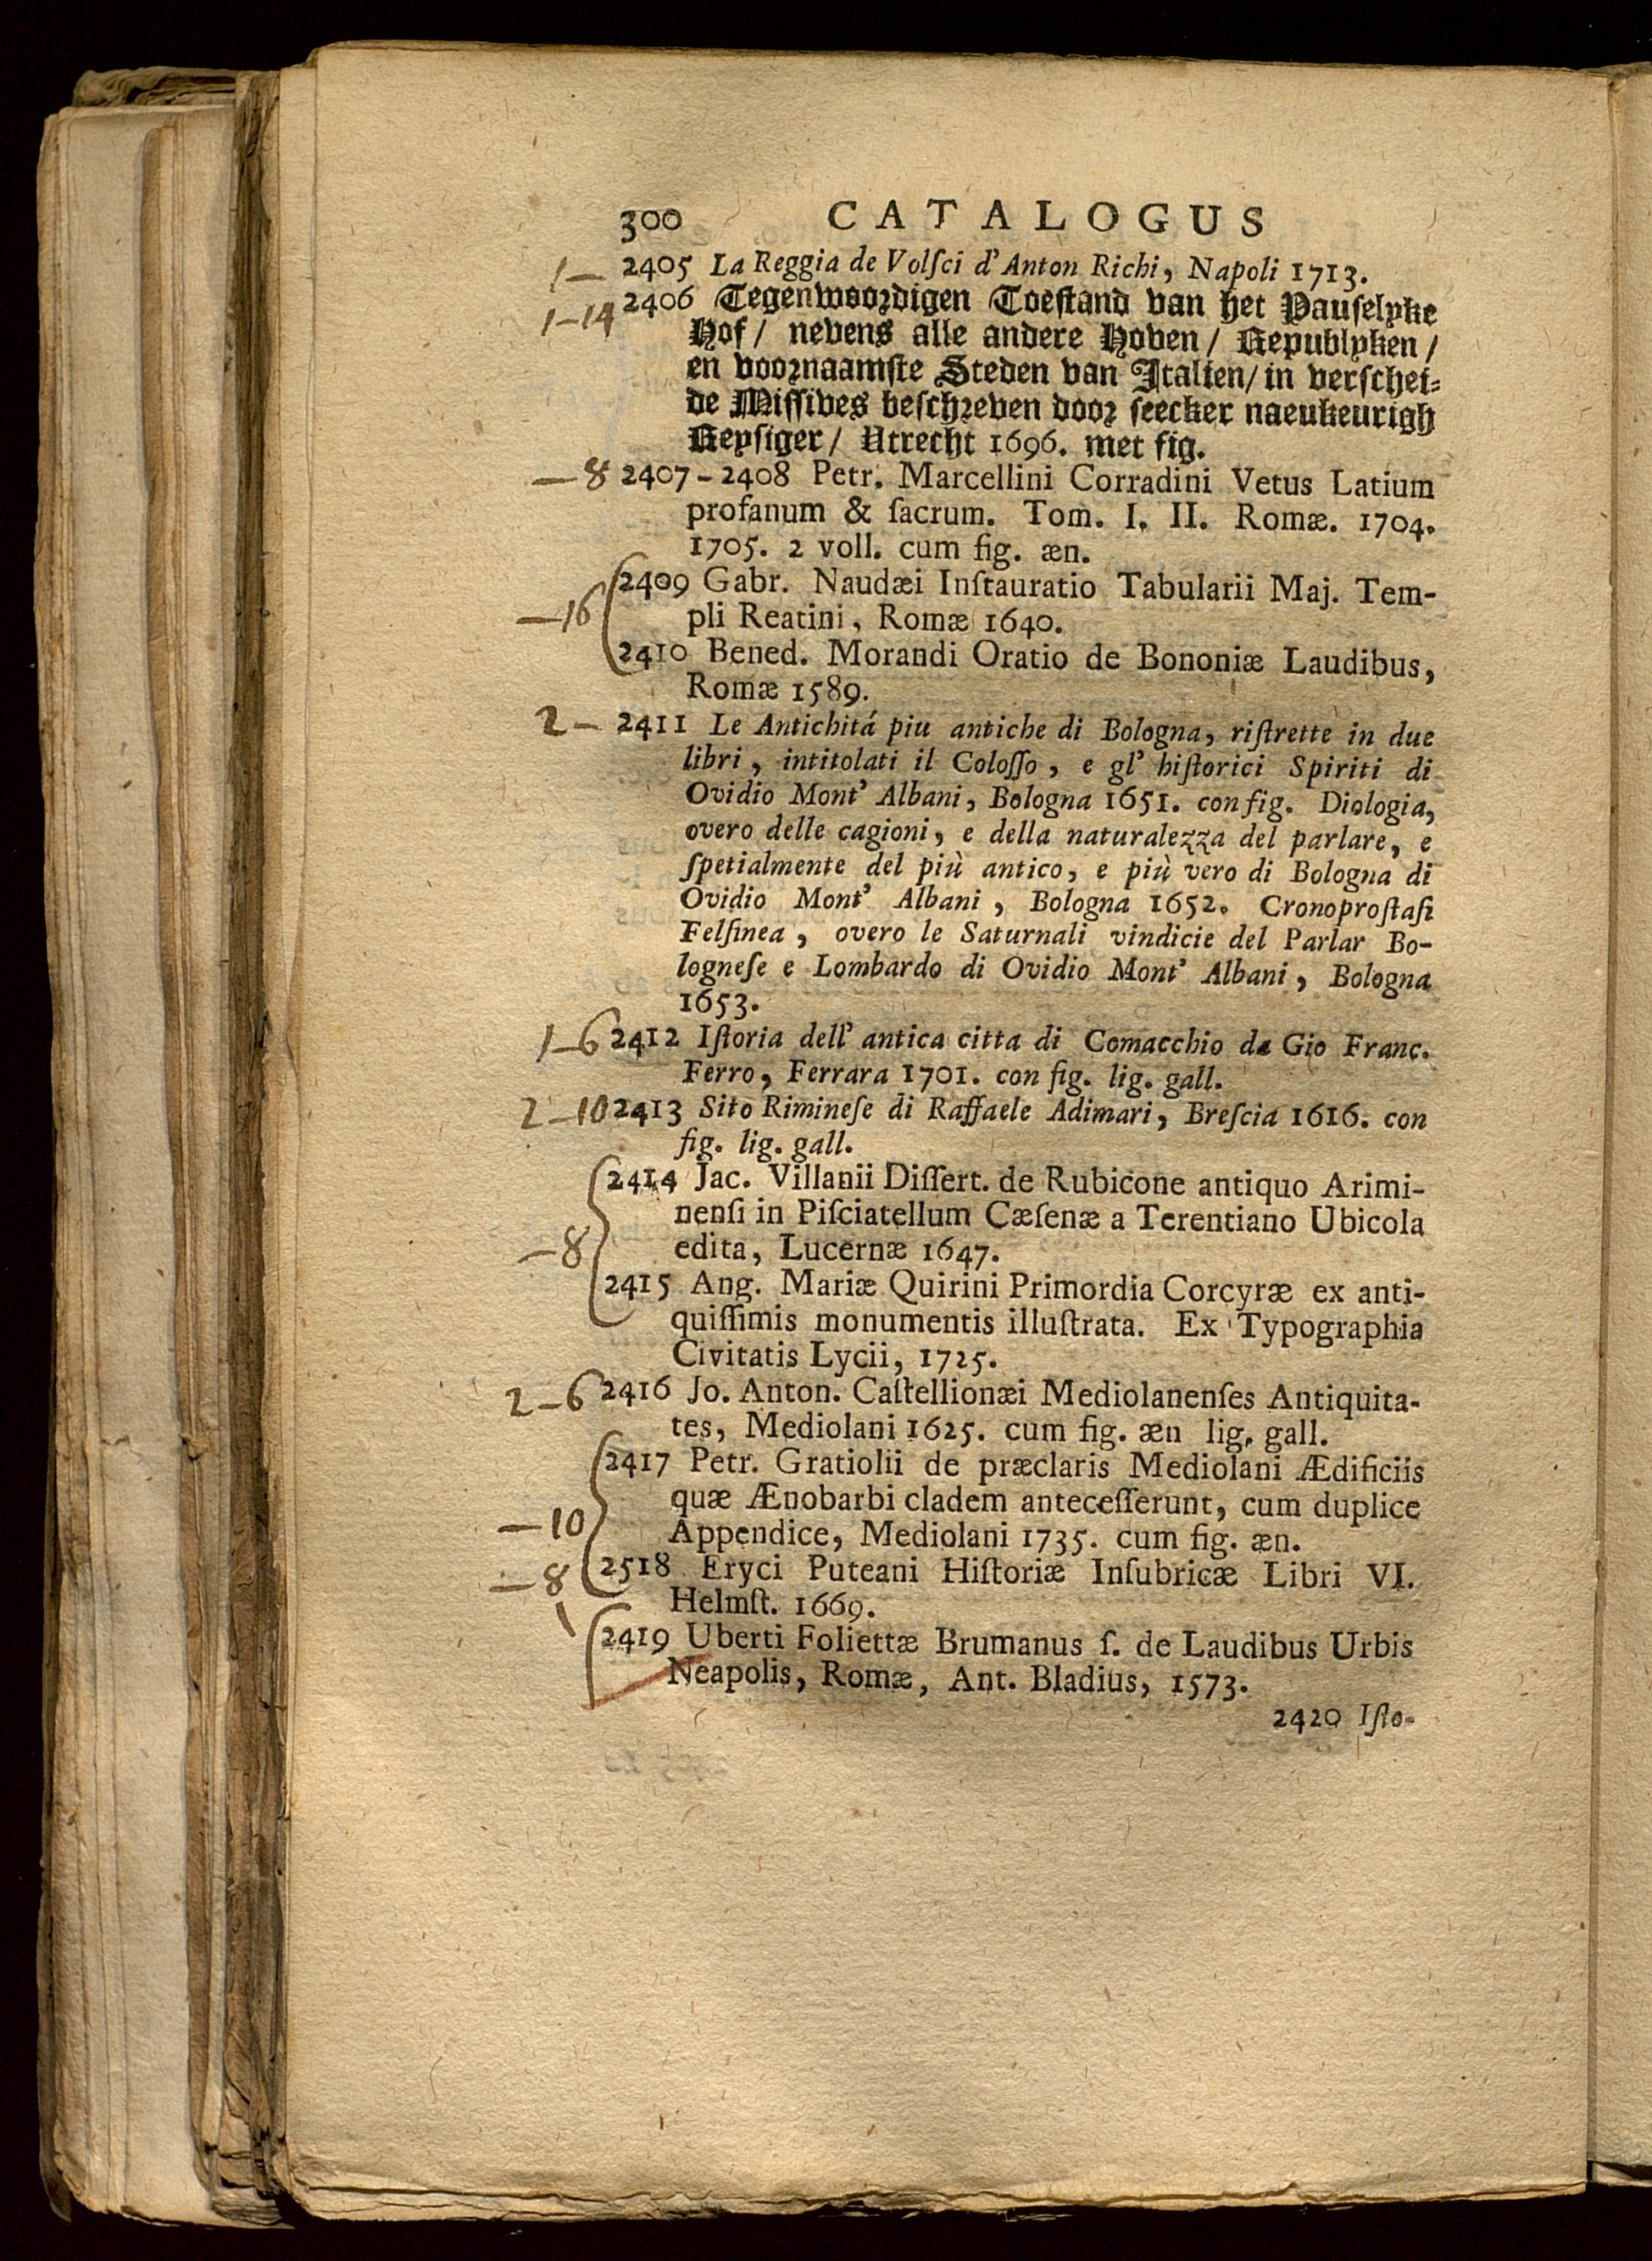 300 CATALOGUS
1— 2405 La Reggia de Volſci d'Anton Richi, Napoli 1713.
1—14 2406 Tegenwoordigen Toeſtand van het Pauſelyke
Hof / nevens alle andere Hoven / Republyken /
en voornaamſte Steden van Italien / in verſchei-
de Miſſives beſchreven door ſeecker naeukeurigh
Reyſiger / Utrecht 1696. met fig.
—8 2407-2408 Petr. Marcellini Corradini Vetus Latium
profanum & ſacrum. Tom. I. II. Romæ. 1704.
1705. 2 voll. cum fig. æn.
2409 Gabr. Naudæi Inſtauratio Tabularii Maj. Tem-
—16 pli Reatini, Romæ 1640.
2410 Bened. Morandi Oratio de Bononiæ Laudibus,
Romæ 1589.
2— 2411 Le Antichitá piu antiche di Bologna, riſtrette in due
libri, intitolati il Coloſſo, e gl' hiſtorici Spiriti di
Ovidio Mont' Albani, Bologna 1651. con fig. Diologia,
overo delle cagioni, e della naturalezza del parlare, e
ſpetialmente del più antico, e più vero di Bologna di
Ovidio Mont' Albani, Bologna 1652. Cronoproſtaſi
Felſinea, overo le Saturnali vindicie del Parlar Bo-
logneſe e Lombardo di Ovidio Mont' Albani, Bologna
1653.
1—6 2412 Iſtoria dell' antica citta di Comacchio da Gio Franc.
Ferro, Ferrara 1701. con fig. lig. gall.
2—10 2413 Sito Rimineſe di Raffaele Adimari, Breſcia 1616. con
fig. lig. gall.
2414 Jac. Villanii Diſſert. de Rubicone antiquo Arimi-
nenſi in Piſciatellum Cæſenæ a Terentiano Ubicola
—8 edita, Lucernæ 1647.
2415 Ang. Mariæ Quirini Primordia Corcyræ ex anti-
quiſſimis monumentis illuſtrata. Ex Typographia
Civitatis Lycii, 1725.
2—6 2416 Jo. Anton. Caſtellionæi Mediolanenſes Antiquita-
tes, Mediolani 1625. cum fig. æn lig. gall.
2417 Petr. Gratiolii de præclaris Mediolani Ædificiis
quæ Ænobarbi cladem anteceſſerunt, cum duplice
—10 Appendice, Mediolani 1735. cum fig. æn.
—8 2518 Eryci Puteani Hiſtoriæ Inſubricæ Libri VI.
Helmſt. 1669.
2419 Uberti Foliettæ Brumanus ſ. de Laudibus Urbis
Neapolis, Romæ, Ant. Bladius, 1573.
2420 Iſto-